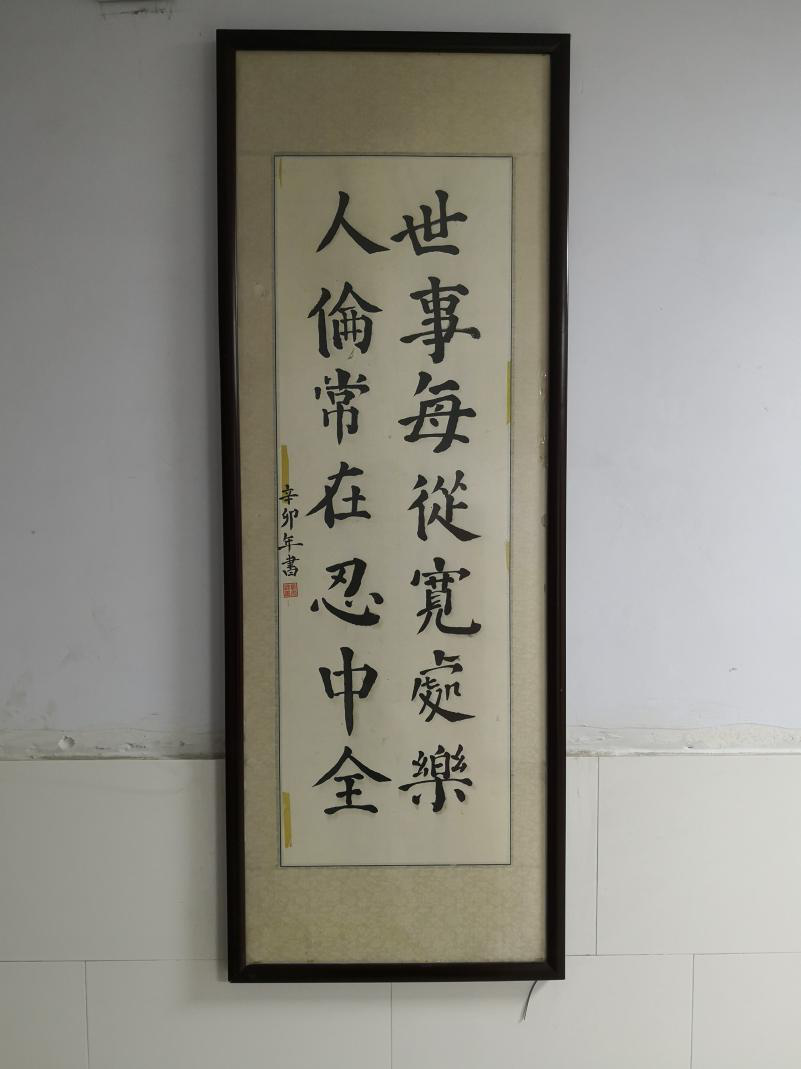 世事每從寬處樂
人倫常在忍中全
辛卯年書